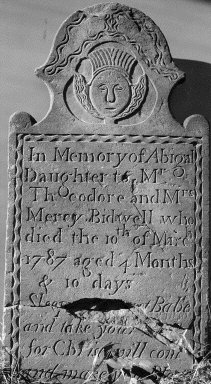 In Memory of Abigail
Daughter to Mr.
Theodore and Mrs
Mercy Bidwell who
died the 10th of March
1787 aged 4 Months
& 10 days
Sleep Babe
and take your
for Christ will com
and